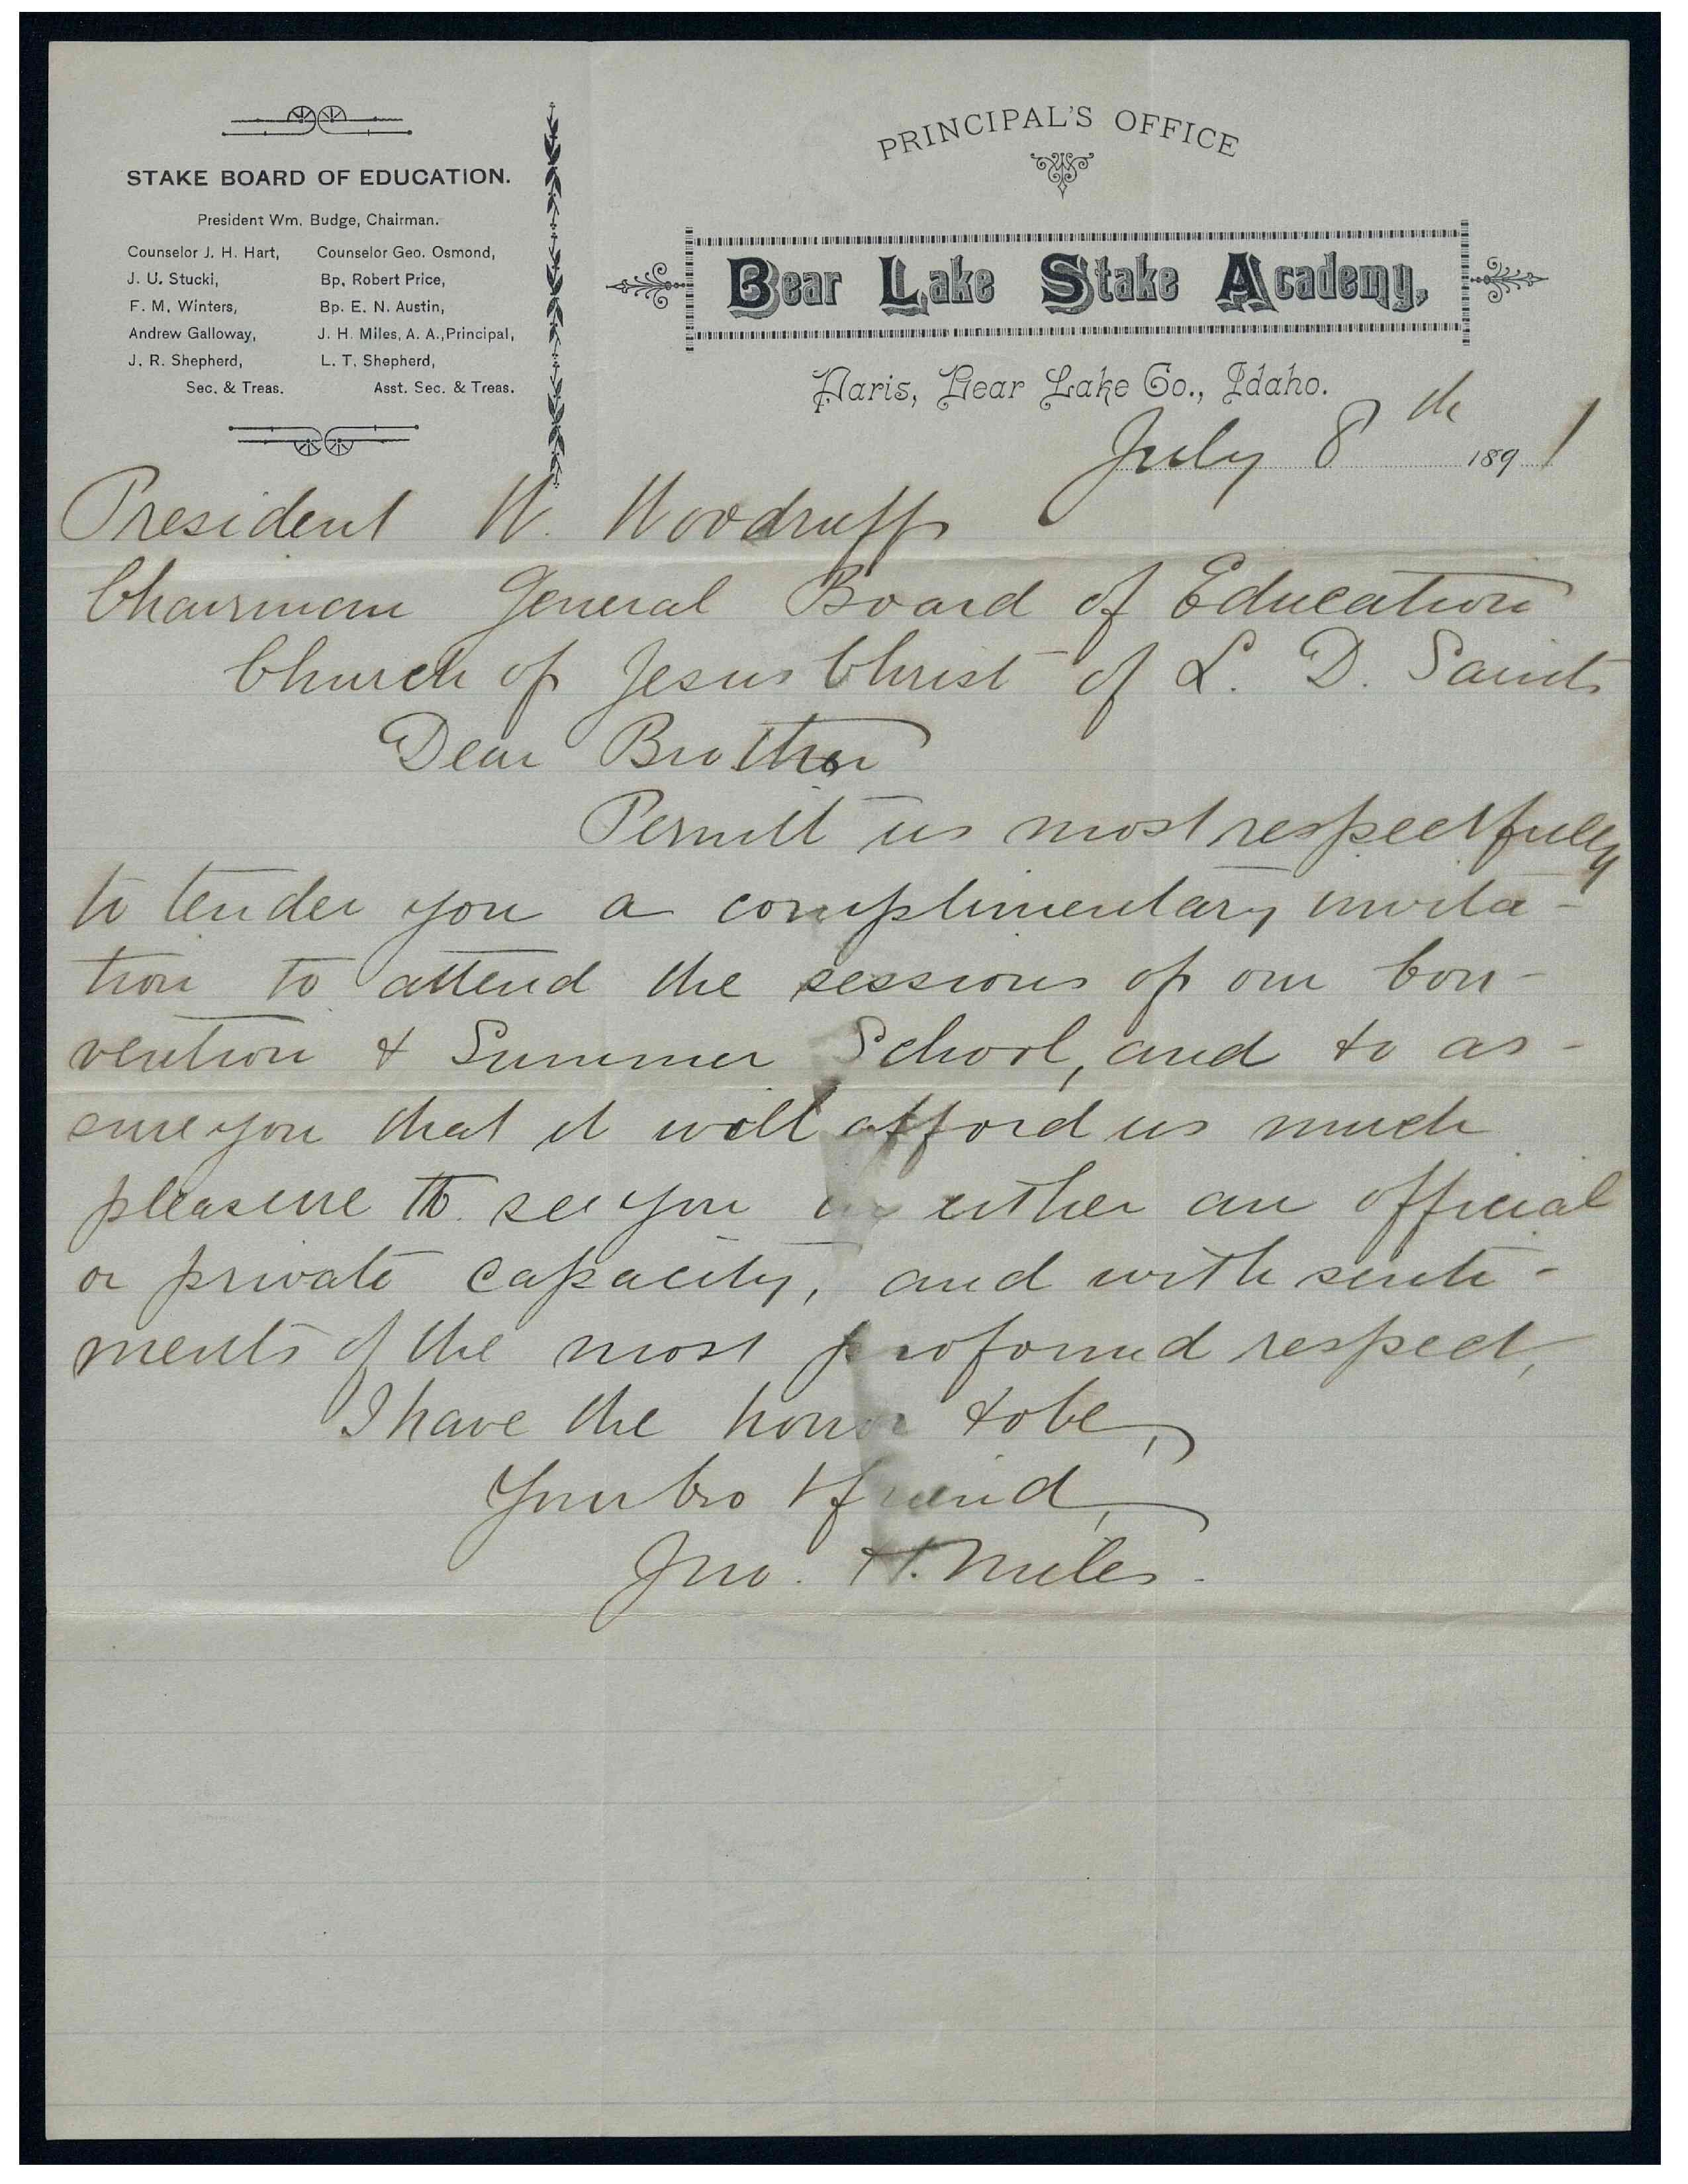 STAKE BOARD OF EDUCATION.
President Wm. Budge, Chairman.
Counselor J. H. Hart,
J. U. Stucki,
F. M. Winters,
Andrew Galloway,
J. R. Shepherd,
Sec. & Treas.
Counselor Geo. Osmond,
Bp. Robert Price,
Bp. E. N. Austin,
J. H. Miles, A. A., Principal,
L. T. Shepherd,
Asst. Sec. & Treas.
PRINCIPAL'S OFFICE
Bear Lake Stake Academy,
Paris, Bear Lake Co., Idaho.
July 8th 1891
President W. Woodruff
Chairman General Board of Education
Church of Jesus Christ of L. D. Saints
Dear Brother
Permit us most respectfully
to tender you a complimentary invita-
tion to attend the sessions of our Con-
vention & Summer School, and to as-
sure you that it will afford us much
pleasure to see you in either an official
or private capacity, and with senti-
ments of the most profound respect,
I have the honor to be,
Your bro & friend,
Jno. H. Miles.